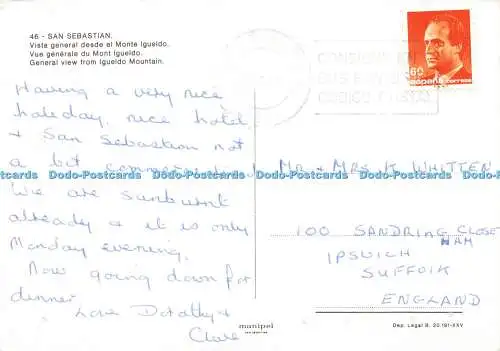 46 - SAN SEBASTIAN.
Vista general desde el Monte Igueldo.
Vue générale du Mont Igueldo.
General view from Igueldo Mountain.
Having a very nice
holiday, nice hotel
& San Sebastian not
a bit commercialised
We are sunburnt
already & it is only
Monday evening.
Now going down for
dinner
Love Dorothy &
Clare
CONSIGNE EN
SUS ENVIOS EL
CODIGO POSTAL
60
españa correos
MR & MRS K WHITTEN
100 SANDRINGHAM CLOSE
IPSWICH
SUFFOLK
ENGLAND
manipel
Dep. Legal B. 20.191-XXV
Dodo-Postcards Dodo-Postcards Dodo-Postcards Dodo-Postcards